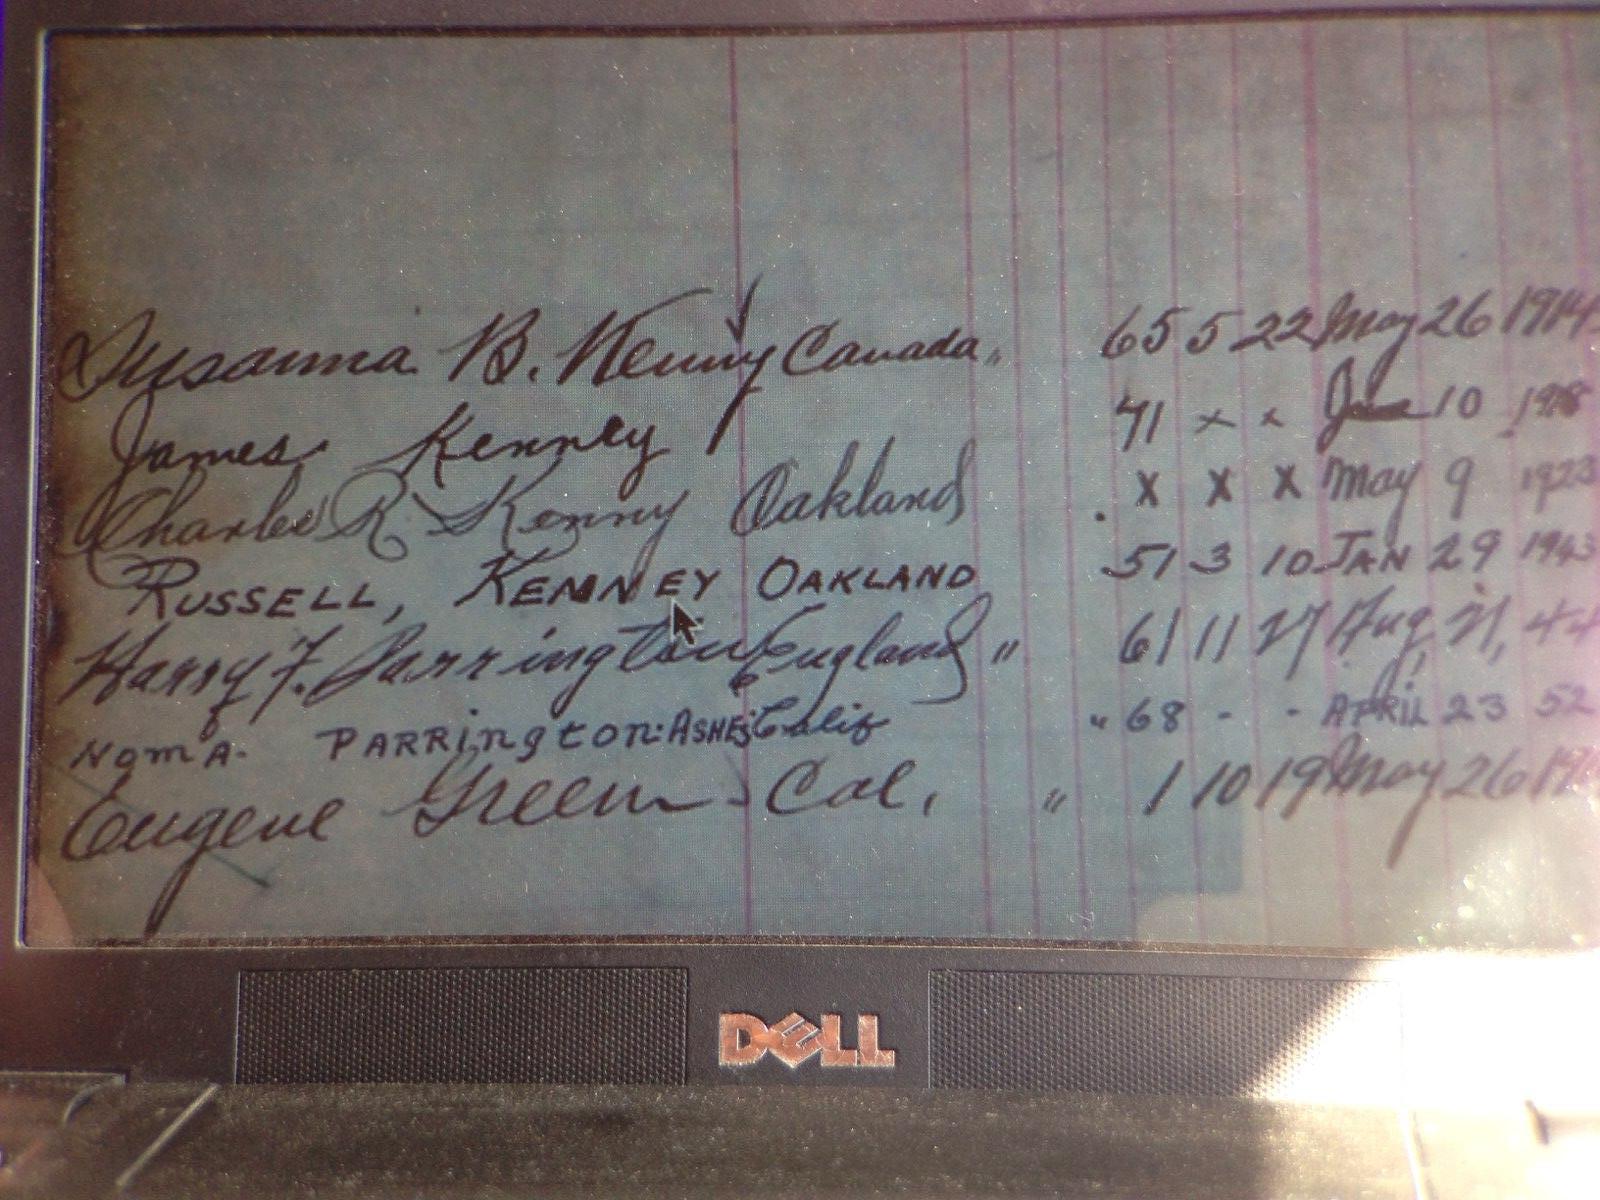 Susanna B. Kenny Canada " 65 5 22 May 26 1914
James Kenney 71 x x 10
Charles R. Kenny Oakland . x x x May 9 1923
RUSSELL, KENNEY OAKLAND 51 3 10 JAN 29 1943
Harry F. Parrington England " 61 11 27 Aug, 21, 44
NomA. PARRington: ASHES Calif " 68 - - APRIL 23 52
Eugene Green Cal. " 1 10 19 May 26
DELL